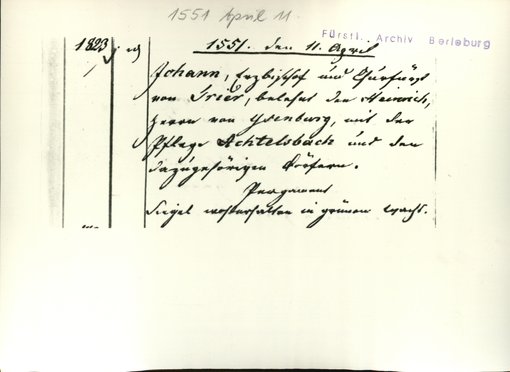 1551 April 11.
Fürstl. Archiv Berleburg
1823
1551. den 11. April
Johann, Erzbischof und Churfürst
von Trier, belehnt den Heinrich,
Herrn von Ysenburg, mit der
Pflege Achtelsbach und den
dazugehörigen Dörfern.
Pergament
Siegel wohlerhalten in grünem Wachs.